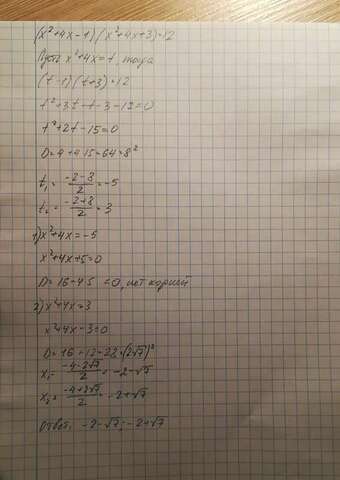 (x²+4x-1)(x²+4x+3)=12
Пусть x²+4x=t, тогда
(t-1)(t+3)=12
t²+3t-t-3-12=0
t²+2t-15=0
D=4+4·15=64=8²
t₁ = (-2-8)/2 = -5
t₂ = (-2+8)/2 = 3
1) x²+4x=-5
x²+4x+5=0
D=16-4·5 <0, нет корней
2) x²+4x=3
x²+4x-3=0
D=16+12=28=(2√7)²
x₁ = (-4-2√7)/2 = -2-√7
x₂ = (-4+2√7)/2 = -2+√7
Ответ: -2-√7; -2+√7